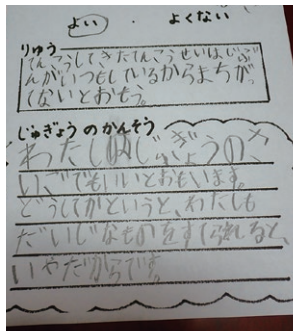 よい ・ よくない
りゅう
てんこうしてきたてんこうせいはじぶ
んがいつもしているからまちが
くないとおもう。
じゅぎょうのかんそう
わたしはじゅぎょうのさ
いごでもいいとおもいます。
どうしてかというと、わたしも
だいじなものをすてられると、
いやだからです。